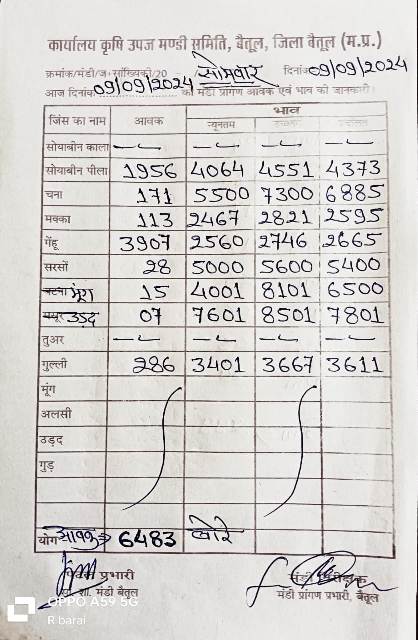 कार्यालय कृषि उपज मण्डी समिति, बैतूल, जिला बैतूल (म.प्र.)
क्रमांक/मंडी/ज.सांख्यिकी/20 सोमवार दिनांक 09/09/2024
आज दिनांक 09/09/2024 को मंडी प्रांगण आवक एवं भाव की जानकारी।
जिंस का नाम आवक भाव
न्यूनतम
सोयाबीन काला — — — —
सोयाबीन पीला 1956 4064 4551 4373
चना 171 5500 7300 6885
मक्का 113 2467 2821 2595
गेंहू 3907 2560 2746 2665
सरसों 28 5000 5600 5400
मूंग 15 4001 8101 6500
उड़द 07 7601 8501 7801
तुअर — — — —
गुल्ली 286 3401 3667 3611
मूंग
अलसी
उड़द
गुड़
योग आवक 6483 बोरे
प्रभारी
शा. मंडी बैतूल
मंडी प्रांगण प्रभारी, बैतूल
OPPO A59 5G
R barai